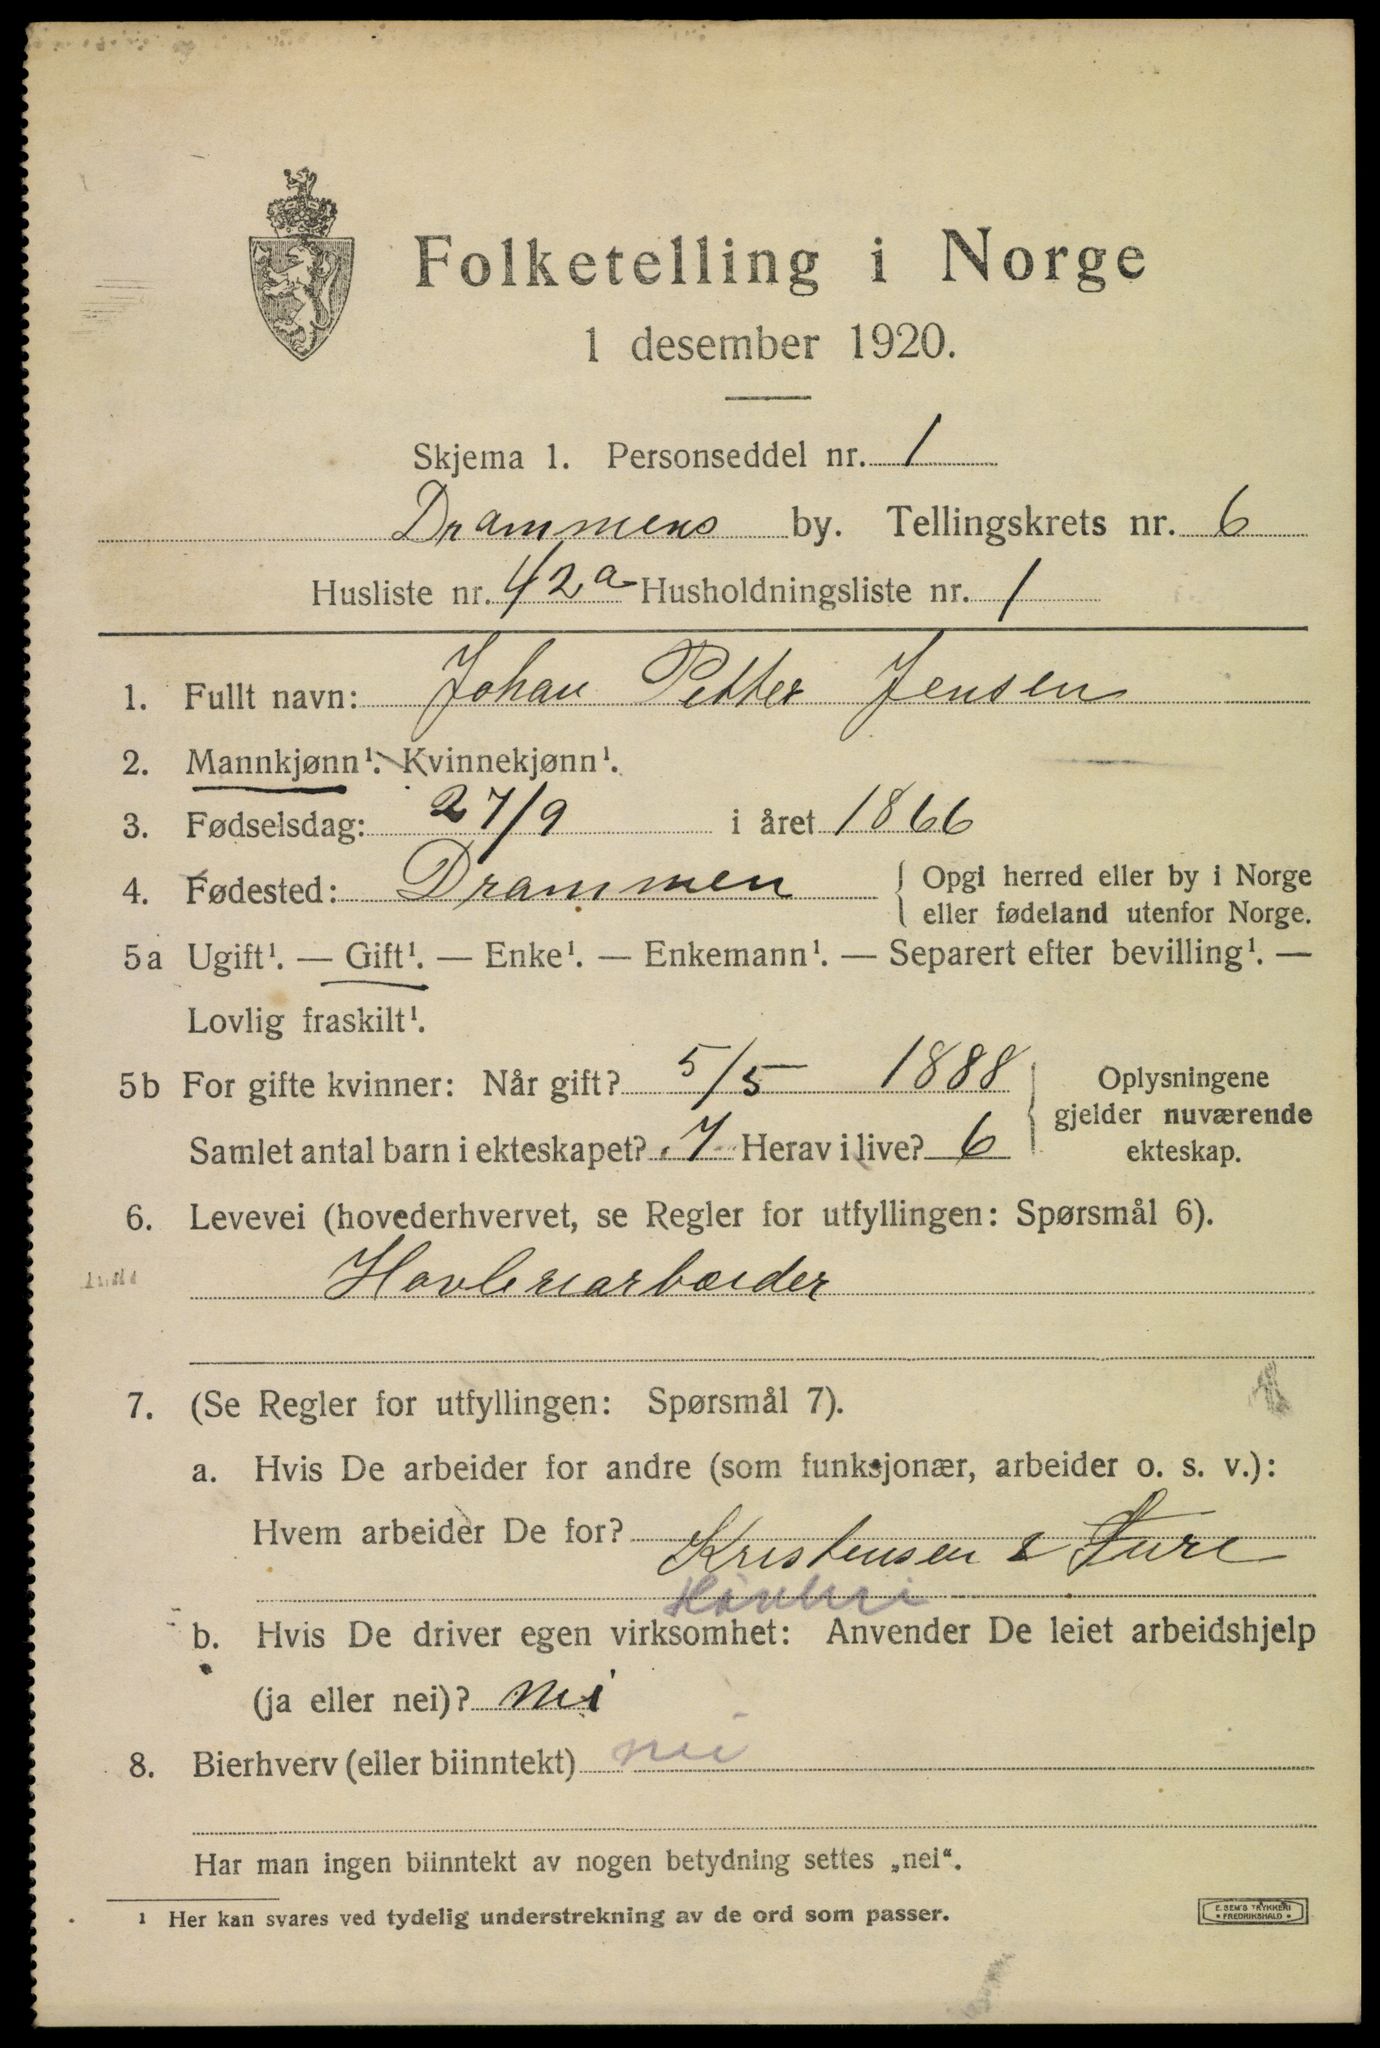 Folketelling i Norge
1 desember 1920.
Skjema 1. Personseddel nr. 1
Drammens by. Tellingskrets nr. 6
Husliste nr. 42a Husholdningsliste nr. 1
1. Fullt navn: Johan Petter Jensen
2. Mannkjønn¹. Kvinnekjønn¹.
3. Fødselsdag: 27/9 i året 1866
4. Fødested: Drammen { Opgi herred eller by i Norge
eller fødeland utenfor Norge.
5a Ugift¹. — Gift¹. — Enke¹. — Enkemann¹. — Separert efter bevilling¹. —
Lovlig fraskilt¹.
5b For gifte kvinner: Når gift? 5/5 1888 } Oplysningene
gjelder nuværende
Samlet antal barn i ekteskapet? 7 Herav i live? 6 ekteskap.
6. Levevei (hovederhvervet, se Regler for utfyllingen: Spørsmål 6).
Havleriarbæider
7. (Se Regler for utfyllingen: Spørsmål 7).
a. Hvis De arbeider for andre (som funksjonær, arbeider o. s. v.):
Hvem arbeider De for? Kristensen & Ture
Høvleri
b. Hvis De driver egen virksomhet: Anvender De leiet arbeidshjelp
(ja eller nei)? nei
8. Bierhverv (eller biinntekt) nei
Har man ingen biinntekt av nogen betydning settes „nei“.
¹ Her kan svares ved tydelig understrekning av de ord som passer.
E. SEM'S TRYKKERI
• FREDRIKSHALD •